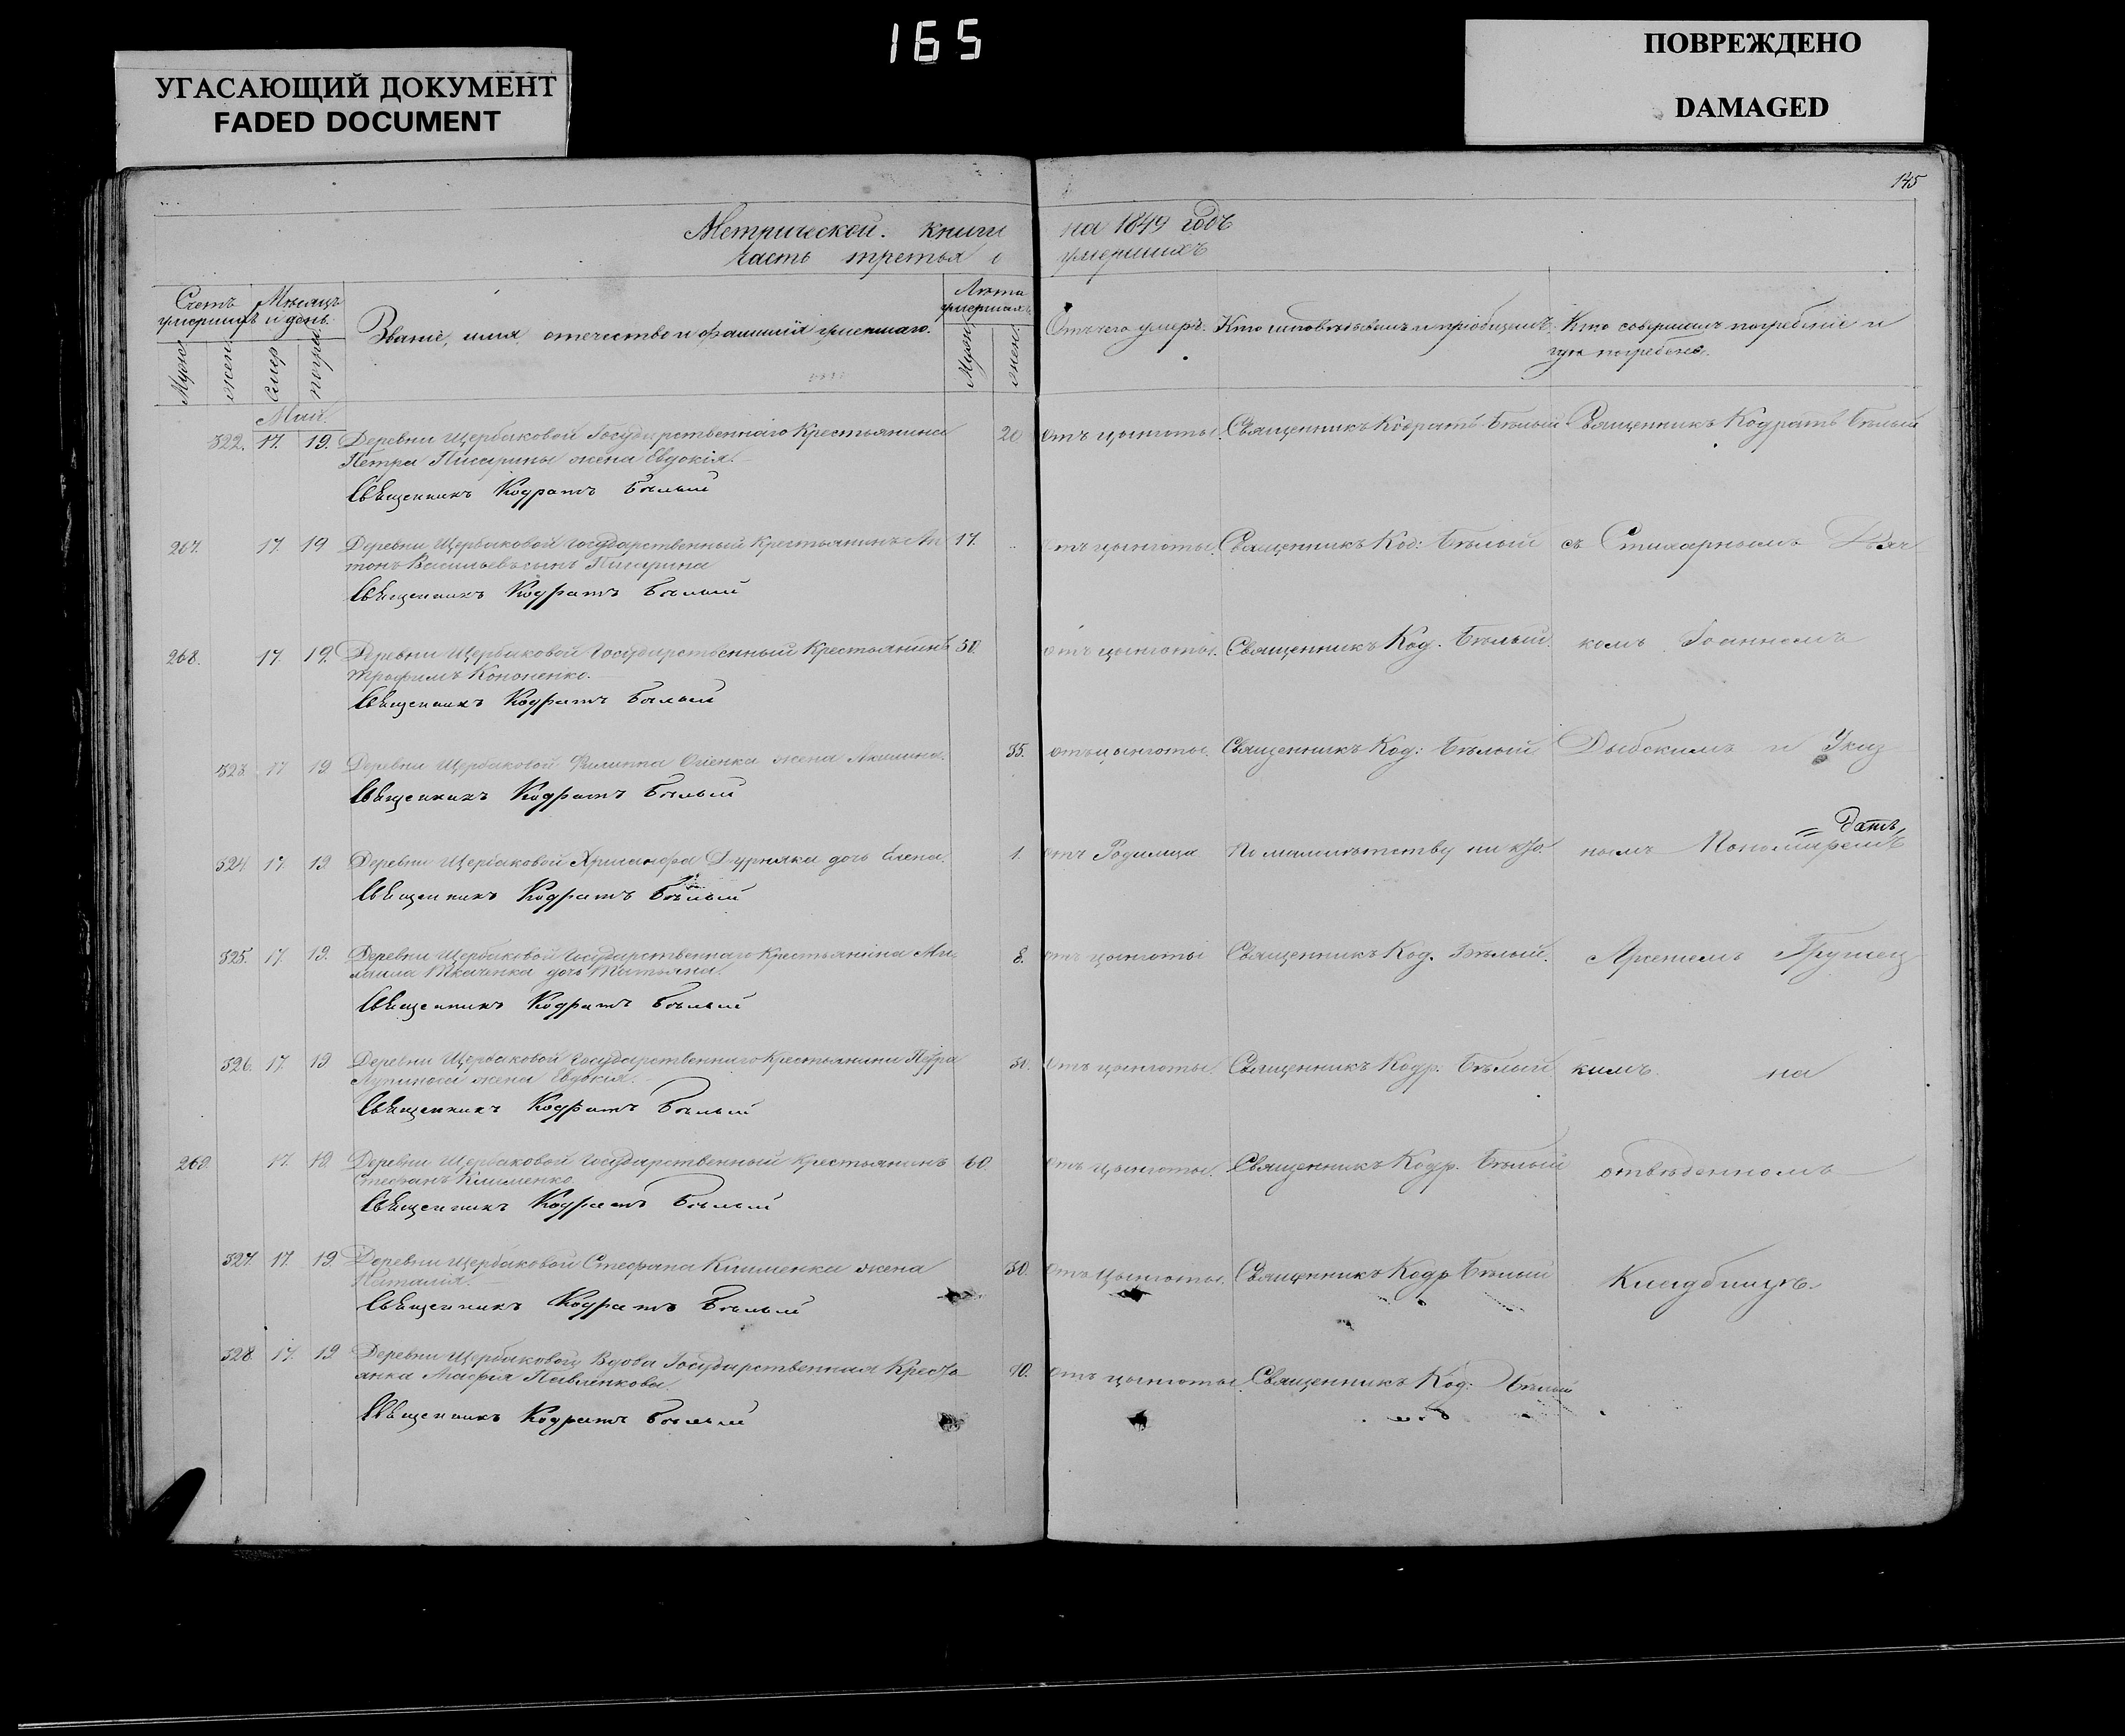 165
УГАСАЮЩИЙ ДОКУМЕНТ
FADED DOCUMENT
ПОВРЕЖДЕНО
DAMAGED
145
Метрической книги на 1849 годъ
часть третья о умершихъ
Счетъ умершихъ
Мѣсяцъ и день.
Званіе, имя отечество и фамилія умершаго.
Лѣта умершаго
Отъ чего умеръ.
Кто исповѣдывалъ и пріобщалъ.
Кто совершалъ погребеніе и
гдѣ погребенъ.
Муж
жен
смер
погре
Муж
жен
Май.
322. 17. 19. Деревни Щербаковой Государственнаго Крестьянина 20 отъ цынготы. Священникъ Кодратъ Бѣлый Священникъ Кодратъ Бѣлый
Петра Писарины жена Евдокія.
Священникъ Кодратъ Бѣлый
267. 17. 19 Деревни Щербаковой Государственный Крестьянинъ Ан 17. отъ цынготы. Священникъ Код: Бѣлый съ Стихарнымъ Дьяч
тонъ Васильевъ сынъ Писарина
Священникъ Кодратъ Бѣлый
268. 17. 19. Деревни Щербаковой Государственный Крестьянинъ 50. отъ цынготы. Священникъ Код. Бѣлый. комъ Іоанномъ
Трофимъ Кононенко.
Священникъ Кодратъ Бѣлый
323. 17 19 Деревни Щербаковой Филиппа жена Акилина. 35. отъ цынготы. Священникъ Код: Бѣлый Дыбскимъ и Указ
Священникъ Кодратъ Бѣлый
324 17. 19. Деревни Щербаковой дочь Елена. 1. отъ Родимца По малолѣтству нымъ
Священникъ Кодратъ Бѣлый
325. 17. 19. Деревни Щербаковой Государственнаго Крестьянина Ми 8. отъ цынготы Священникъ Код. Бѣлый.
хаила Ткаченка дочь Татьяна.
Священникъ Кодратъ Бѣлый
326. 17. 19 Деревни Щербаковой Государственнаго Крестьянина Петра отъ цынготы. Священникъ Кодр. Бѣлый кимъ. на
жена Евдокія.
Священникъ Кодратъ Бѣлый
269. 17. 19. Деревни Щербаковой Государственный Крестьянинъ 60. отъ цынготы. Священникъ Кодр. Бѣлый отвѣденномъ
Стефанъ Клименко.
Священникъ Кодратъ Бѣлый
327. 17. 19. Деревни Щербаковой Стефана Клименка жена 50. отъ цынготы. Священникъ Кодр Бѣлый Кладбищѣ.
Наталія.
Священникъ Кодратъ Бѣлый
328. 17. 19 Деревни Щербаковой Вдова Государственная Кресть отъ цынготы. Священникъ Код: Бѣлый
янка Марфа Павленкова.
Священникъ Кодратъ Бѣлый